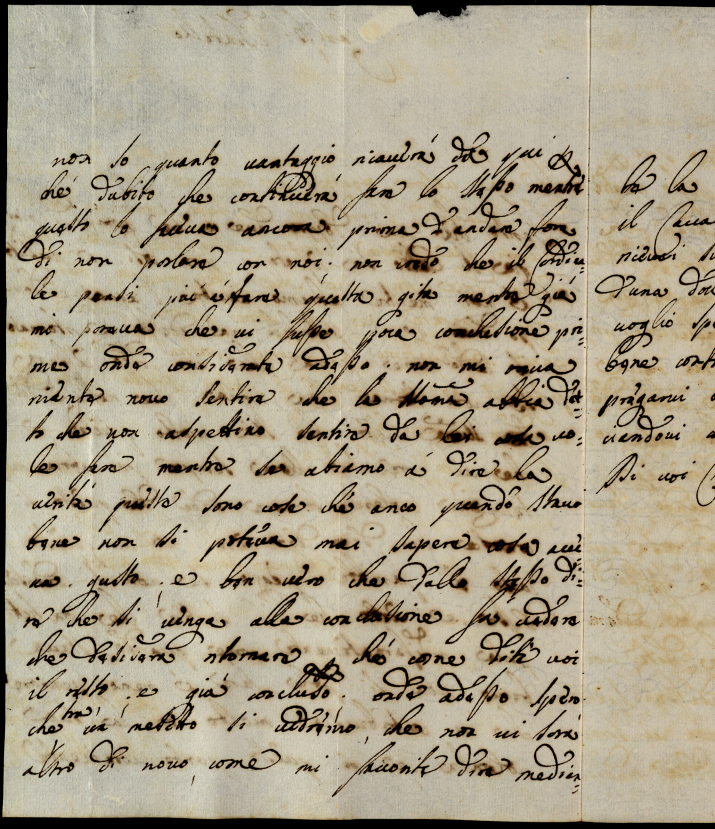 non so quanto vantaggio ricaverà da qui
che dubito che continuerà fare lo stesso mentre
questo lo faceva ancora prima d'andare fora
di non parlare con noi. non credo che il Cardina=
le pensi più a fare questa gita mentre già
mi pareva che vi fusse poca conclusione pri=
ma onde considerate adesso. non mi riesce
niente novo sentire che la abbia det=
to che non aspettino sentire da lei cosa vo=
le fare mentre se abiamo à dire la
verità queste sono cose che anco quando stava
bene non si poteva mai sapere cosa ave
va gusto. e ben vero che dalla stesso di=
re che si venga alla conclusione fa vedere
che desidera ritornare che come dite voi
il resto e già concluso. onde adesso spero
che trà un mesetto si vedranno, che non vi sarà
altro di novo, come mi favorite dire median=
be la
il
d'una
voglio
bene
pregarvi
viandovi
Di voi